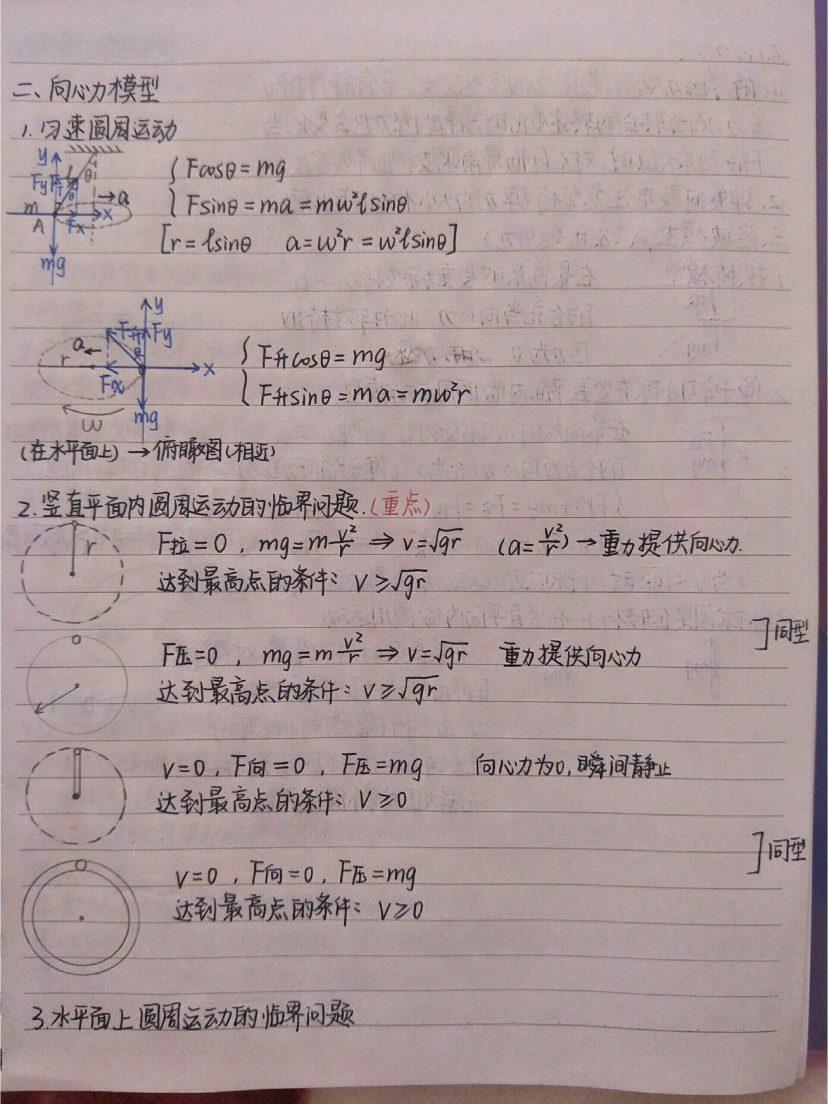 二、向心力模型
1.匀速圆周运动
y
Fy F θ
m → a
A Fx x
mg
{ Fcosθ = mg
Fsinθ = ma = mω²lsinθ
[r = lsinθ a = ω²r = ω²lsinθ]
y
F升 Fy
a θ
r
Fx x
ω mg
{ F升cosθ = mg
F升sinθ = ma = mω²r
(在水平面上) → 俯瞰图(相近)
2.竖直平面内圆周运动的临界问题.(重点)
r
F拉 = 0 , mg = m v²/r ⇒ v = √gr (a = v²/r) → 重力提供向心力.
达到最高点的条件: v ≥ √gr
F压=0 , mg = m v²/r ⇒ v = √gr 重力提供向心力
达到最高点的条件: v ≥ √gr
]同型
v=0, F向 = 0 , F压=mg 向心力为0,瞬间静止
达到最高点的条件: v ≥ 0
v=0 , F向=0 , F压=mg
达到最高点的条件: v ≥ 0
]同型
3.水平面上圆周运动的临界问题